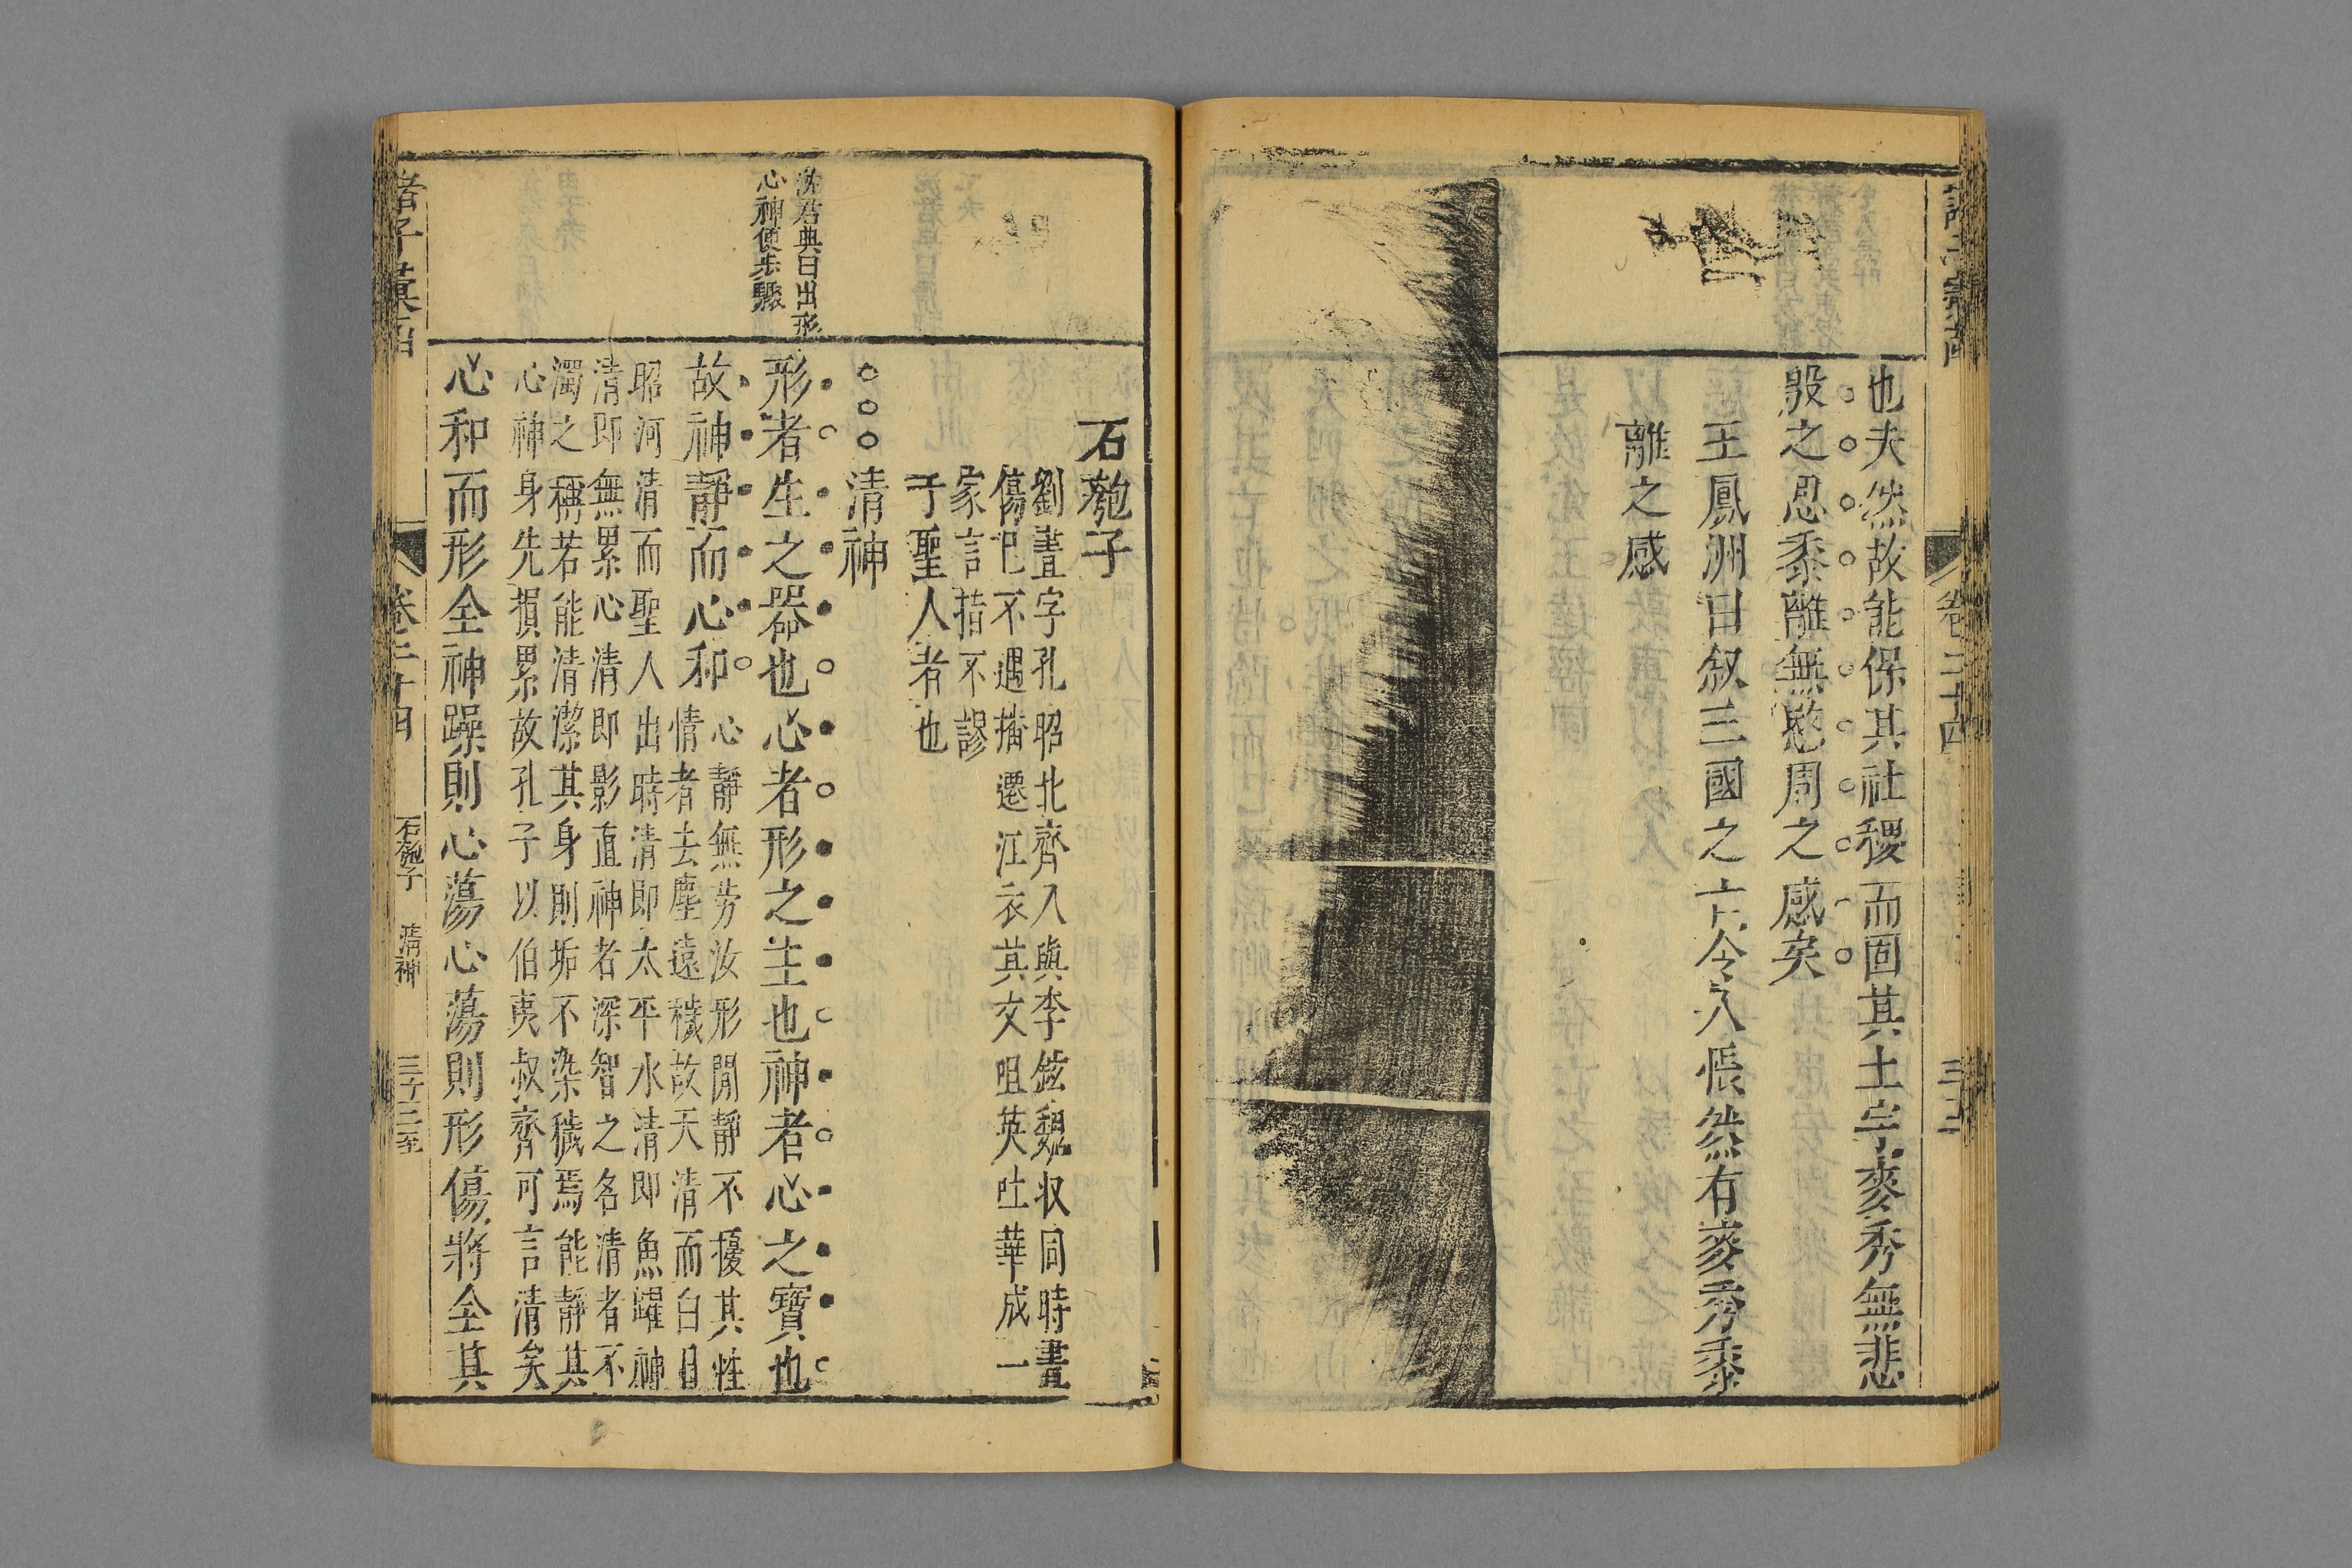 也夫然故能保其社稷而固其土宇麥秀無悲
殷之思黍離無愍周之感矣
王鳳洲曰叙三國之亡令人悵然有麥秀黍
離之感
卷二十四
石匏子
劉晝字孔昭北齊人與李鉉魏収同時晝
傷巳不遇播遷江衣其文咀英吐華成一
家言指不謬
于聖人者也
清神
沈君典曰出形
心神便步驟
形者生之器也心者形之主也神者心之寶也
故神靜而心和
心靜無勞汝形閒靜不擾其性
情者去塵遠穢故天清而白日
昭河清而聖人出時清即太平水清即魚躍神
清即無累心清即影直神者深智之名清者不
濁之稱若能清潔其身則垢不染穢焉能靜其
心神身先損累故孔子以伯夷叔齊可言清矣
心和而形全神躁則心蕩心蕩則形傷將全其
諸子彙函
卷二十四
石匏子
清神